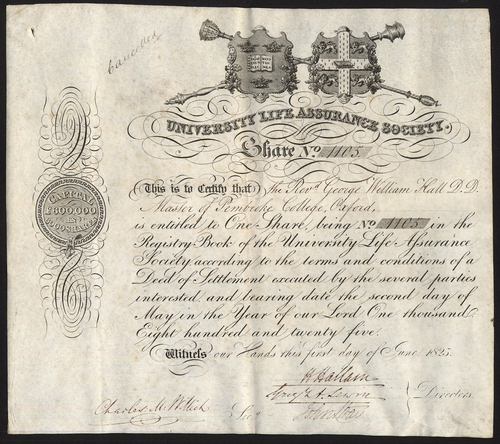 Cancelled
UNIVERSITY LIFE ASSURANCE SOCIETY.
Share No. 1105
CAPITAL
£600,000
IN
6000 SHARES
This is to Certify that The Revd. George William Hall D.D.
Master of Pembroke College, Oxford,
is entitled to One Share, being No. 1105 in the
Registry Book of the University Life Assurance
Society according to the terms and conditions of a
Deed of Settlement executed by the several parties
interested and bearing date the second day of
May in the Year of our Lord One thousand
Eight hundred and twenty five.
Witness our Hands this first day of June 1825.
H Hallam
Charles M. Willich
Directors.